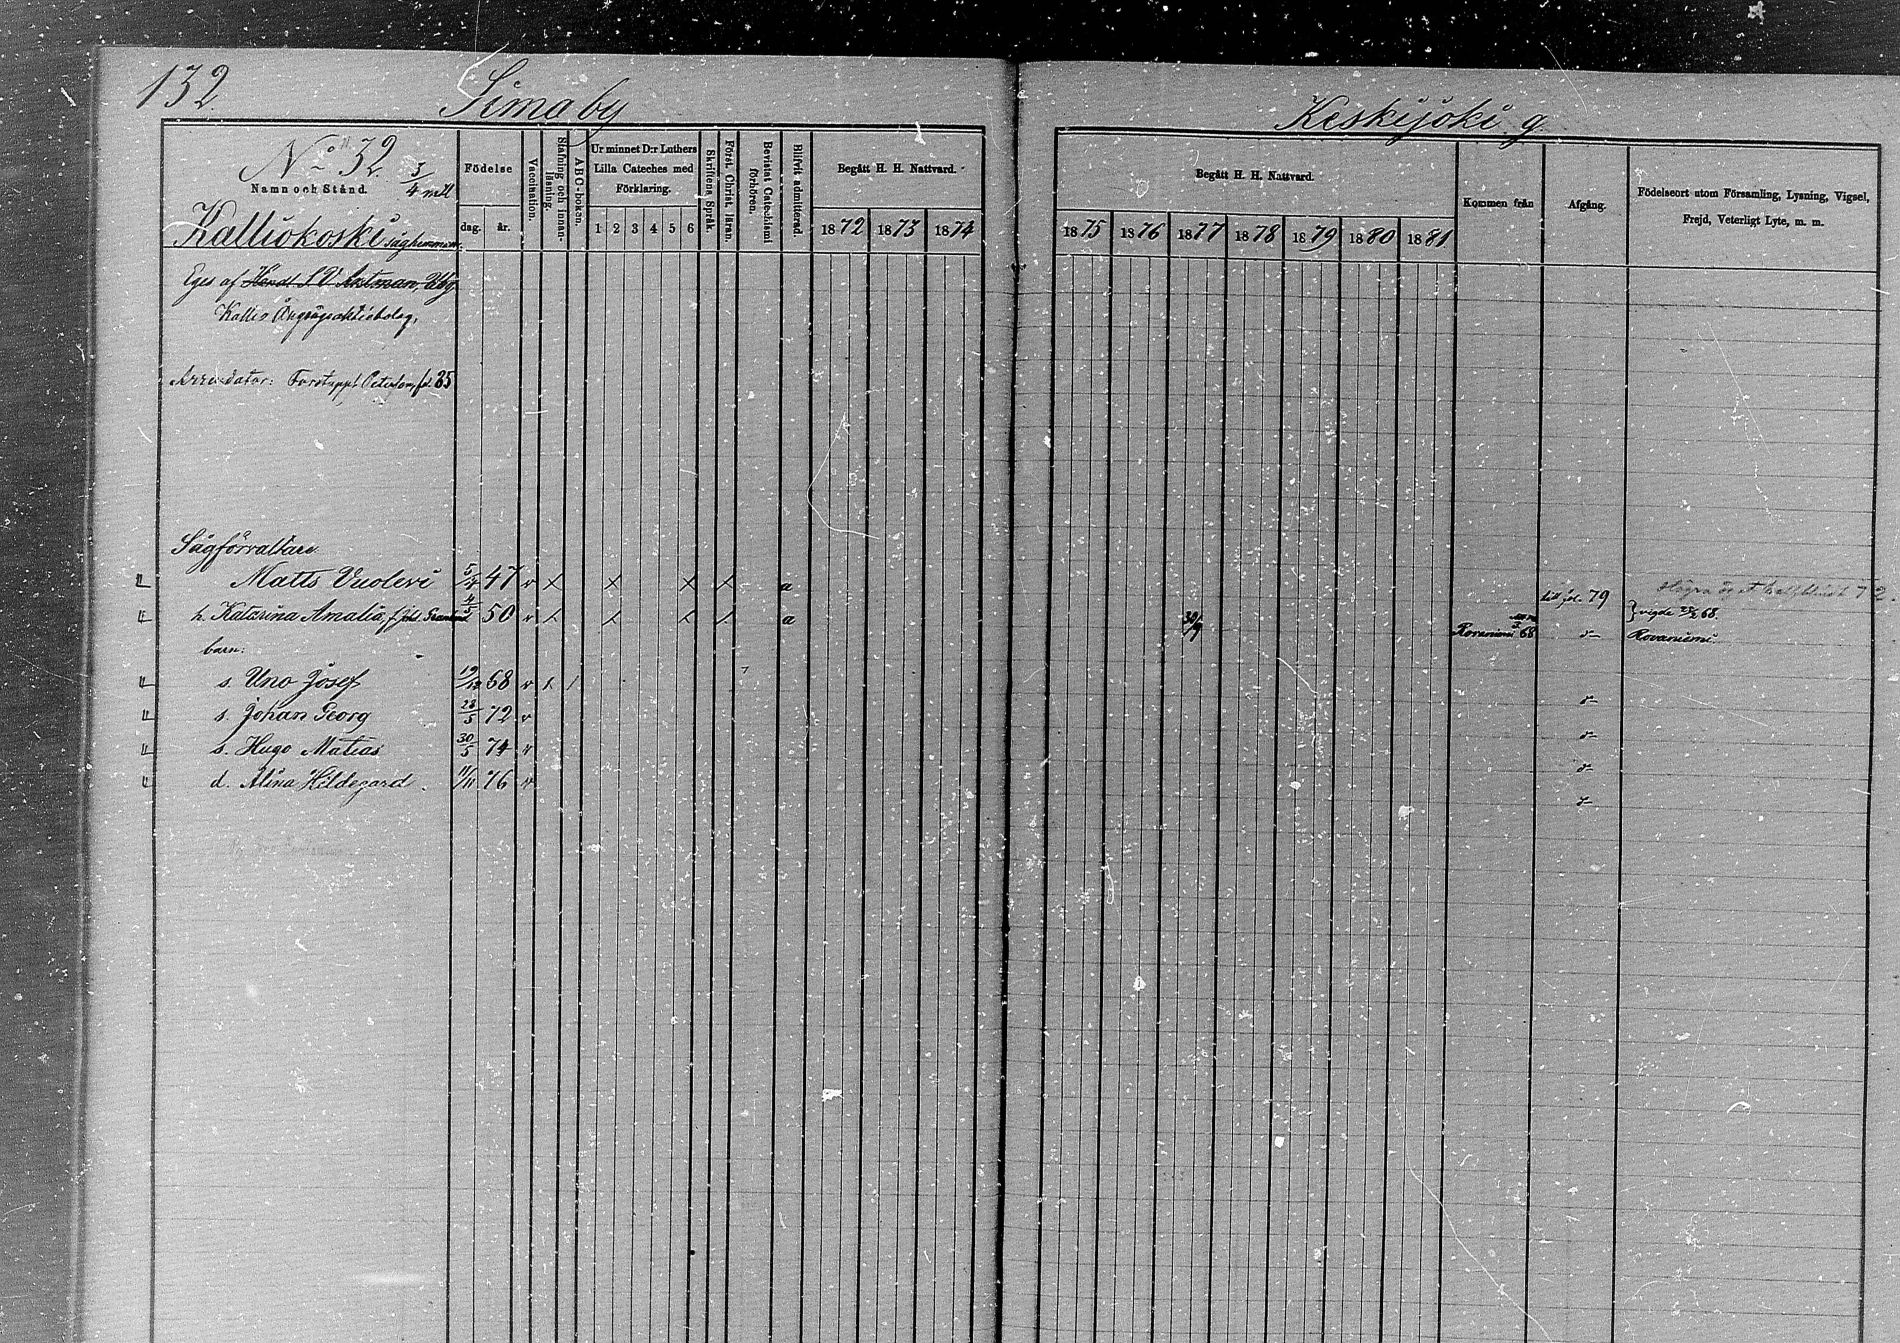 132.
Simo by
Keskijoki g.
No 32. 3/4 mtl
Namn och Stånd.
Kalliokoski såghemman.
Födelse
dag. år.
Vaccination.
Stafning och innanläsning.
ABC-boken.
Ur minnet D:r Luthers Lilla Cateches med Förklaring.
1 2 3 4 5 6
Skriftens Språk.
Först. Christ. läran.
Bevistat Catechismi förhören.
Blifvit admitterad.
Begått H. H. Nattvard.
1872 1873 1874
Begått H. H. Nattvard.
1875 1876 1877 1878 1879 1880 1881
Kommen från
Afgång.
Födelseort utom Församling, Lysning, Vigsel, Frejd, Veterligt Lyte, m. m.
Eges af
Kallio Ångsågsaktiebolag,
Arrendator: 35
Sågförvaltare
Matts Vuolevi 5/4 47 v x x x x a till fol. 79 Högra ögat 72.
h. Katarina Amalia, 50 v x x x x a 30/9 Rovaniemi 68 d- } vigde 68. Rovaniemi.
barn:
s. Uno Josef 19/12 68 v x / d-
s. Johan Georg 28/5 72 v d-
s. Hugo Matias 30/5 74 v d-
d. Alina Hildegard. 11/11 76 v d-